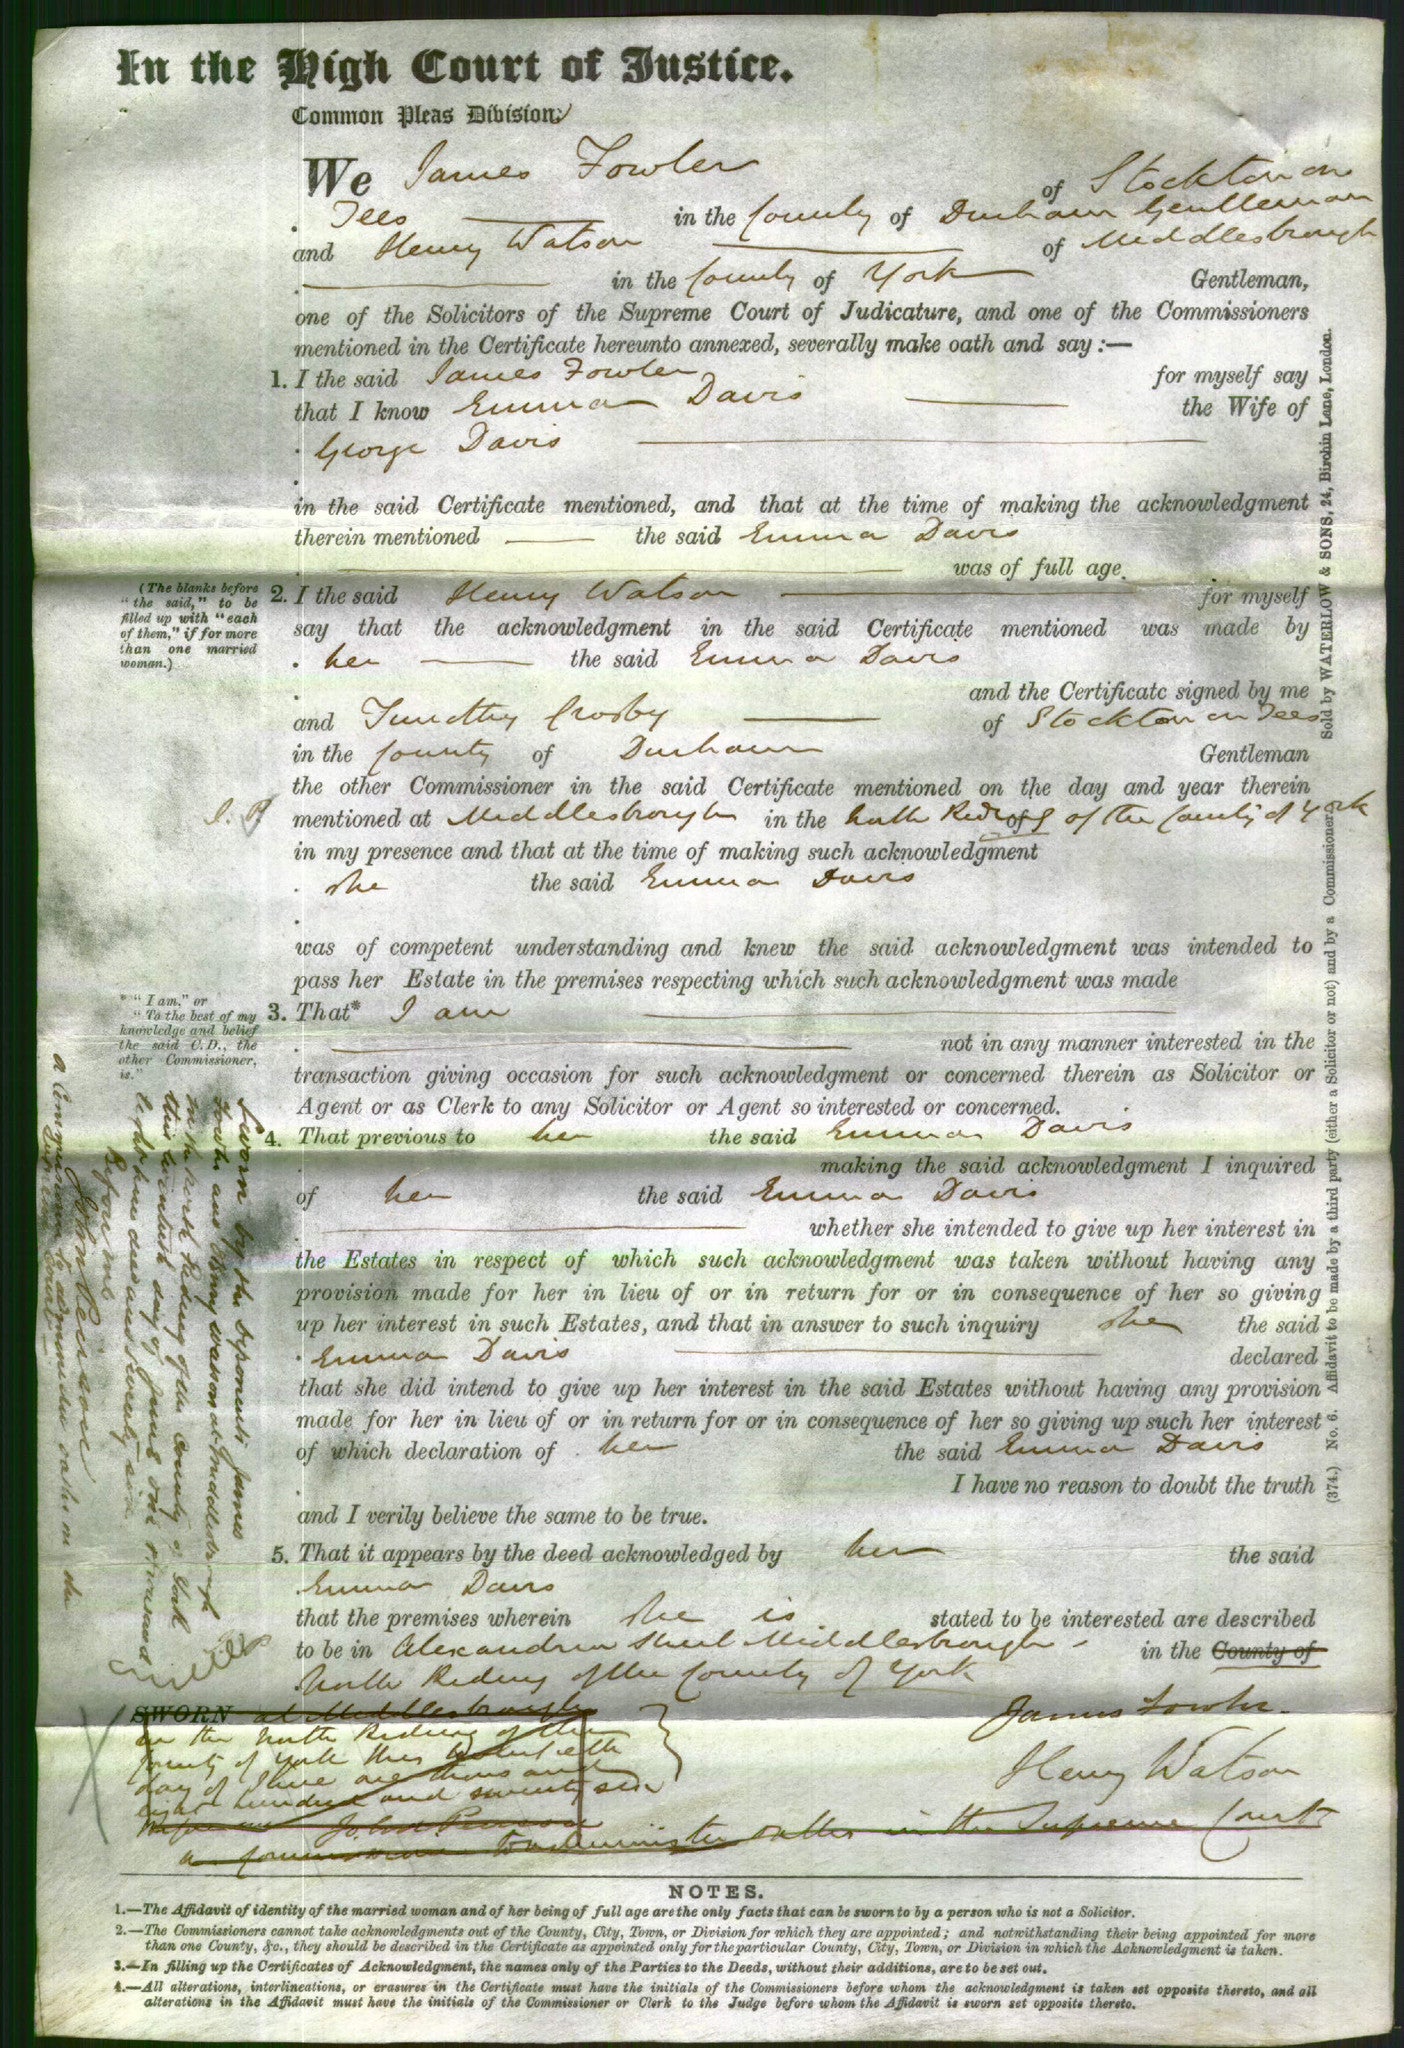 In the High Court of Justice.
Common Pleas Division.
We James Fowler of Stockton on
Tees in the County of Durham Gentleman
and Henry Watson of Middlesbrough
in the County of York Gentleman,
one of the Solicitors of the Supreme Court of Judicature, and one of the Commissioners
mentioned in the Certificate hereunto annexed, severally make oath and say :—
1. I the said James Fowler for myself say
that I know Emma Davis the Wife of
George Davis
in the said Certificate mentioned, and that at the time of making the acknowledgment
therein mentioned the said Emma Davis
was of full age.
(The blanks before
"the said," to be
filled up with "each
of them," if for more
than one married
woman.)
2. I the said Henry Watson for myself
say that the acknowledgment in the said Certificate mentioned was made by
her the said Emma Davis
and the Certificate signed by me
and Timothy Crosby of Stockton on Tees
in the County of Durham Gentleman
the other Commissioner in the said Certificate mentioned on the day and year therein
J. P. mentioned at Middlesbrough in the North Riding of the County of York
in my presence and that at the time of making such acknowledgment
she the said Emma Davis
was of competent understanding and knew the said acknowledgment was intended to
pass her Estate in the premises respecting which such acknowledgment was made
* "I am," or
"To the best of my
knowledge and belief
the said C.D., the
other Commissioner,
is."
3. That* I am
not in any manner interested in the
transaction giving occasion for such acknowledgment or concerned therein as Solicitor or
Agent or as Clerk to any Solicitor or Agent so interested or concerned.
4. That previous to her the said Emma Davis
making the said acknowledgment I inquired
of her the said Emma Davis
whether she intended to give up her interest in
the Estates in respect of which such acknowledgment was taken without having any
provision made for her in lieu of or in return for or in consequence of her so giving
up her interest in such Estates, and that in answer to such inquiry she the said
Emma Davis declared
that she did intend to give up her interest in the said Estates without having any provision
made for her in lieu of or in return for or in consequence of her so giving up such her interest
of which declaration of her the said Emma Davis
I have no reason to doubt the truth
and I verily believe the same to be true.
5. That it appears by the deed acknowledged by her the said
Emma Davis
that the premises wherein she is stated to be interested are described
to be in Alexandra Street Middlesbrough in the County of
North Riding of the County of York
Sworn by the deponents James
Fowler and Henry Watson at Middlesbrough
in the North Riding of the County of York
this twentieth day of June one thousand
eight hundred and seventy six
Before me
John
a Commissioner to administer oaths in the
Supreme Court
SWORN at Middlesbrough
in the North Riding of the
County of York this twentieth
day of June one thousand
eight hundred and seventy six
Before me John
a Commissioner to administer oaths in the Supreme Court
James Fowler
Henry Watson
NOTES.
1.—The Affidavit of identity of the married woman and of her being of full age are the only facts that can be sworn to by a person who is not a Solicitor.
2.—The Commissioners cannot take acknowledgments out of the County, City, Town, or Division for which they are appointed; and notwithstanding their being appointed for more
than one County, &c., they should be described in the Certificate as appointed only for the particular County, City, Town, or Division in which the Acknowledgment is taken.
3.—In filling up the Certificates of Acknowledgment, the names only of the Parties to the Deeds, without their additions, are to be set out.
4.—All alterations, interlineations, or erasures in the Certificate must have the initials of the Commissioners before whom the acknowledgment is taken set opposite thereto, and all
alterations in the Affidavit must have the initials of the Commissioner or Clerk to the Judge before whom the Affidavit is sworn set opposite thereto.
(374.) No. 6. Affidavit to be made by a third party (either a Solicitor or not) and by a Commissioner. Sold by WATERLOW & SONS, 24, Birchin Lane, London.